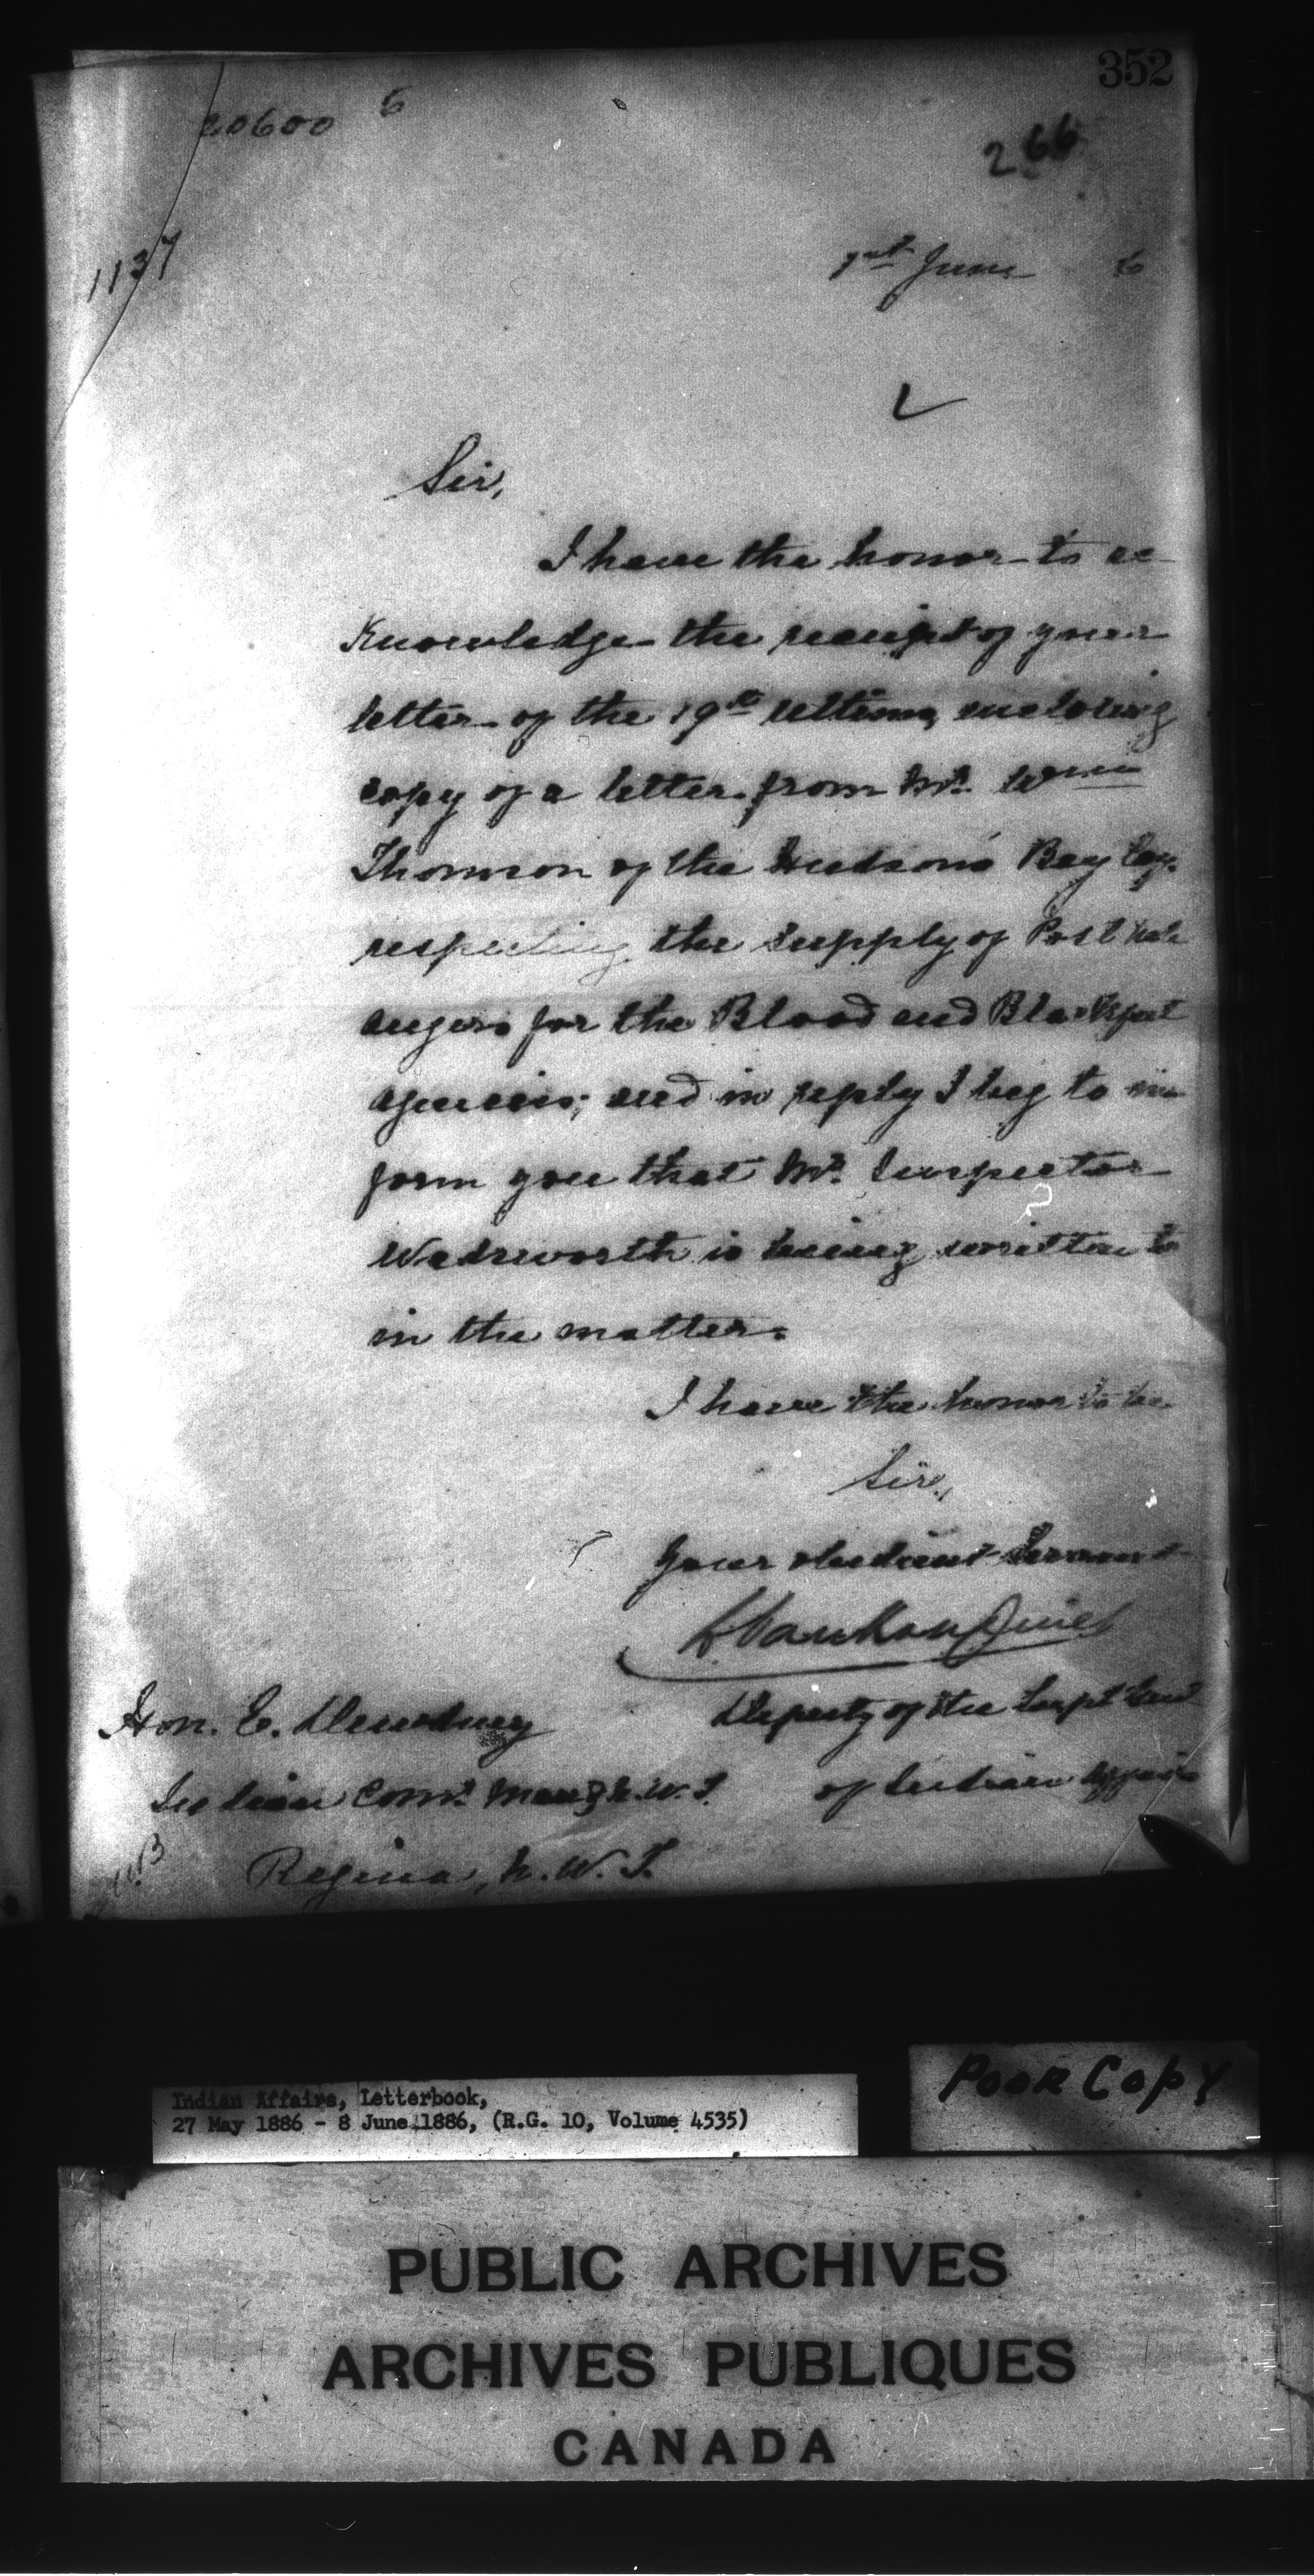 352
20600 6
266
1137
1st June 6
Sir,
I have the honor to ac-
knowledge the receipt of your
letter of the 19th ultimo, enclosing
copy of a letter from Mr. Wm
Thomson of the Hudson's Bay Coy.
respecting the supply of Post hole
augers for the Blood and Blackfoot
agencies; and in reply I beg to in-
form you that Mr. Inspector
Wadsworth is being written to
in the matter.
I have the honor to be
Sir,
Your obedient servant
L. VanKoughnet
Deputy of the Supt Genl
of Indian Affairs
Hon. E. Dewdney
Indian Comr. Man & N.W.T.
Regina, N.W.T.
Poor Copy
Indian Affairs, Letterbook,
27 May 1886 - 8 June 1886, (R.G. 10, Volume 4535)
PUBLIC ARCHIVES
ARCHIVES PUBLIQUES
CANADA